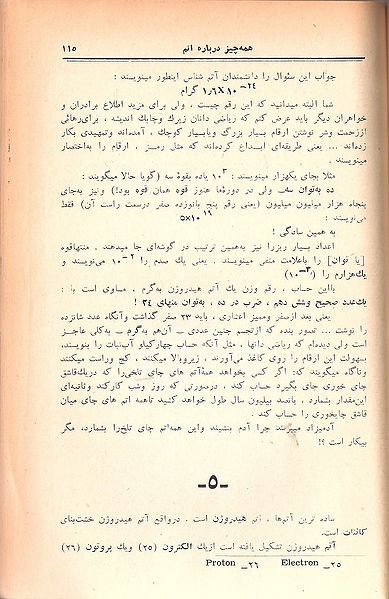 همه‌چیز درباره اتم ۱۱۵
جواب این سئوال را دانشمندان آتم شناس اینطور مینویسند :
۱٫۶X۱۰ -۲۴ گرام
شما البته میدانید که این رقم چیست ، ولی برای مزید اطلاع برادران و
خواهران دیگر باید عرض کنم که ریاضی دانان زیرك وچابك اندیشه ، برای‌رهائی
اززحمت وشر نوشتن ارقام بسیار بزرگ ویابسیار کوچك ، آمده‌اند وتمهیدی بکار
زده‌اند ... یعنی طریقه‌ای ابداع کرده‌اند که مثل رمز ، ارقام را به‌اختصار
مینویسند .
مثلا بجای یکهزار مینویسند : ۱۰۳ یاده بقوهٔ سه (گویا حالا میگویند :
ده به‌توان سه. ولی در دورهٔما هنوز قوه همان قوه بود!) ونیز به‌جای
پنجاه هزار میلیون میلیون (یعنی رقم پنج بانوزده صفر درسمت راست آن) فقط
مینویسند : ۵X۱۰ ۱۹
به همین سادگی !
اعداد بسیار ریزرا نیز به‌همین ترتیب در گوشه‌ای جا میدهند . منتهاقوه
[یا توان] را باعلامت منفی مینویسند . یعنی یك صدم را ۱۰-۲ می‌نویسند و
یك‌هزارم را (۱۰-۳)
بااین حساب ، رقم وزن یك آتم هیدروژن به‌گرم . مساوی است با :
یك‌عدد صحیح وشش دهم ، ضرب در ده ، به‌توان منهای ۲۴ !
یعنی بعد ازصفر وممیز اعشاری ، باید ۲۳ صفر گذاشت وآنگاه عدد شانزده
را نوشت ... تصور بنده که ازتجسم چنین عددی ــ آن‌هم به‌گرم ــ به‌کلی عاجز
است ولی دیده‌ام که ریاضی دانها ، مثل آنکه حساب چهارکیلو آب‌نبات را بنویسند،
بسهولت این ارقام را روی کاغذ می‌آورند ، زیروبالا میکنند ، کج وراست میکنند
وناگاه میگویند که: اگر کسی بخواهد همهٔ‌آتم های چای تلخی‌را که دریك‌قاشق
چای خوری جای بگیرد حساب کند ، درصورتی که روز وشب کارکند وثانیه‌ای
این‌مقدار بشمارد ، پانصد بیلیون سال طول خواهد کشید تاهمه اتم های چای میان
قاشق چایخوری را حساب کند .
آدمیزاد میپرسد چرا آدم بنشیند واین همه‌اتم چای تلخ‌را بشمارد، مگر
بیکار است ؟!
-۵-
ساده ترین آتم‌ها ، اتم هیدروژن است . درواقع آتم هیدروژن خشت‌بنای
کائنات است.
آتم هیدروژن تشکیل یافته است ازیك الکترون (۲۵) ویك پروتون (۲۶)
۲۵ــ Electron ۲۶ــ Proton